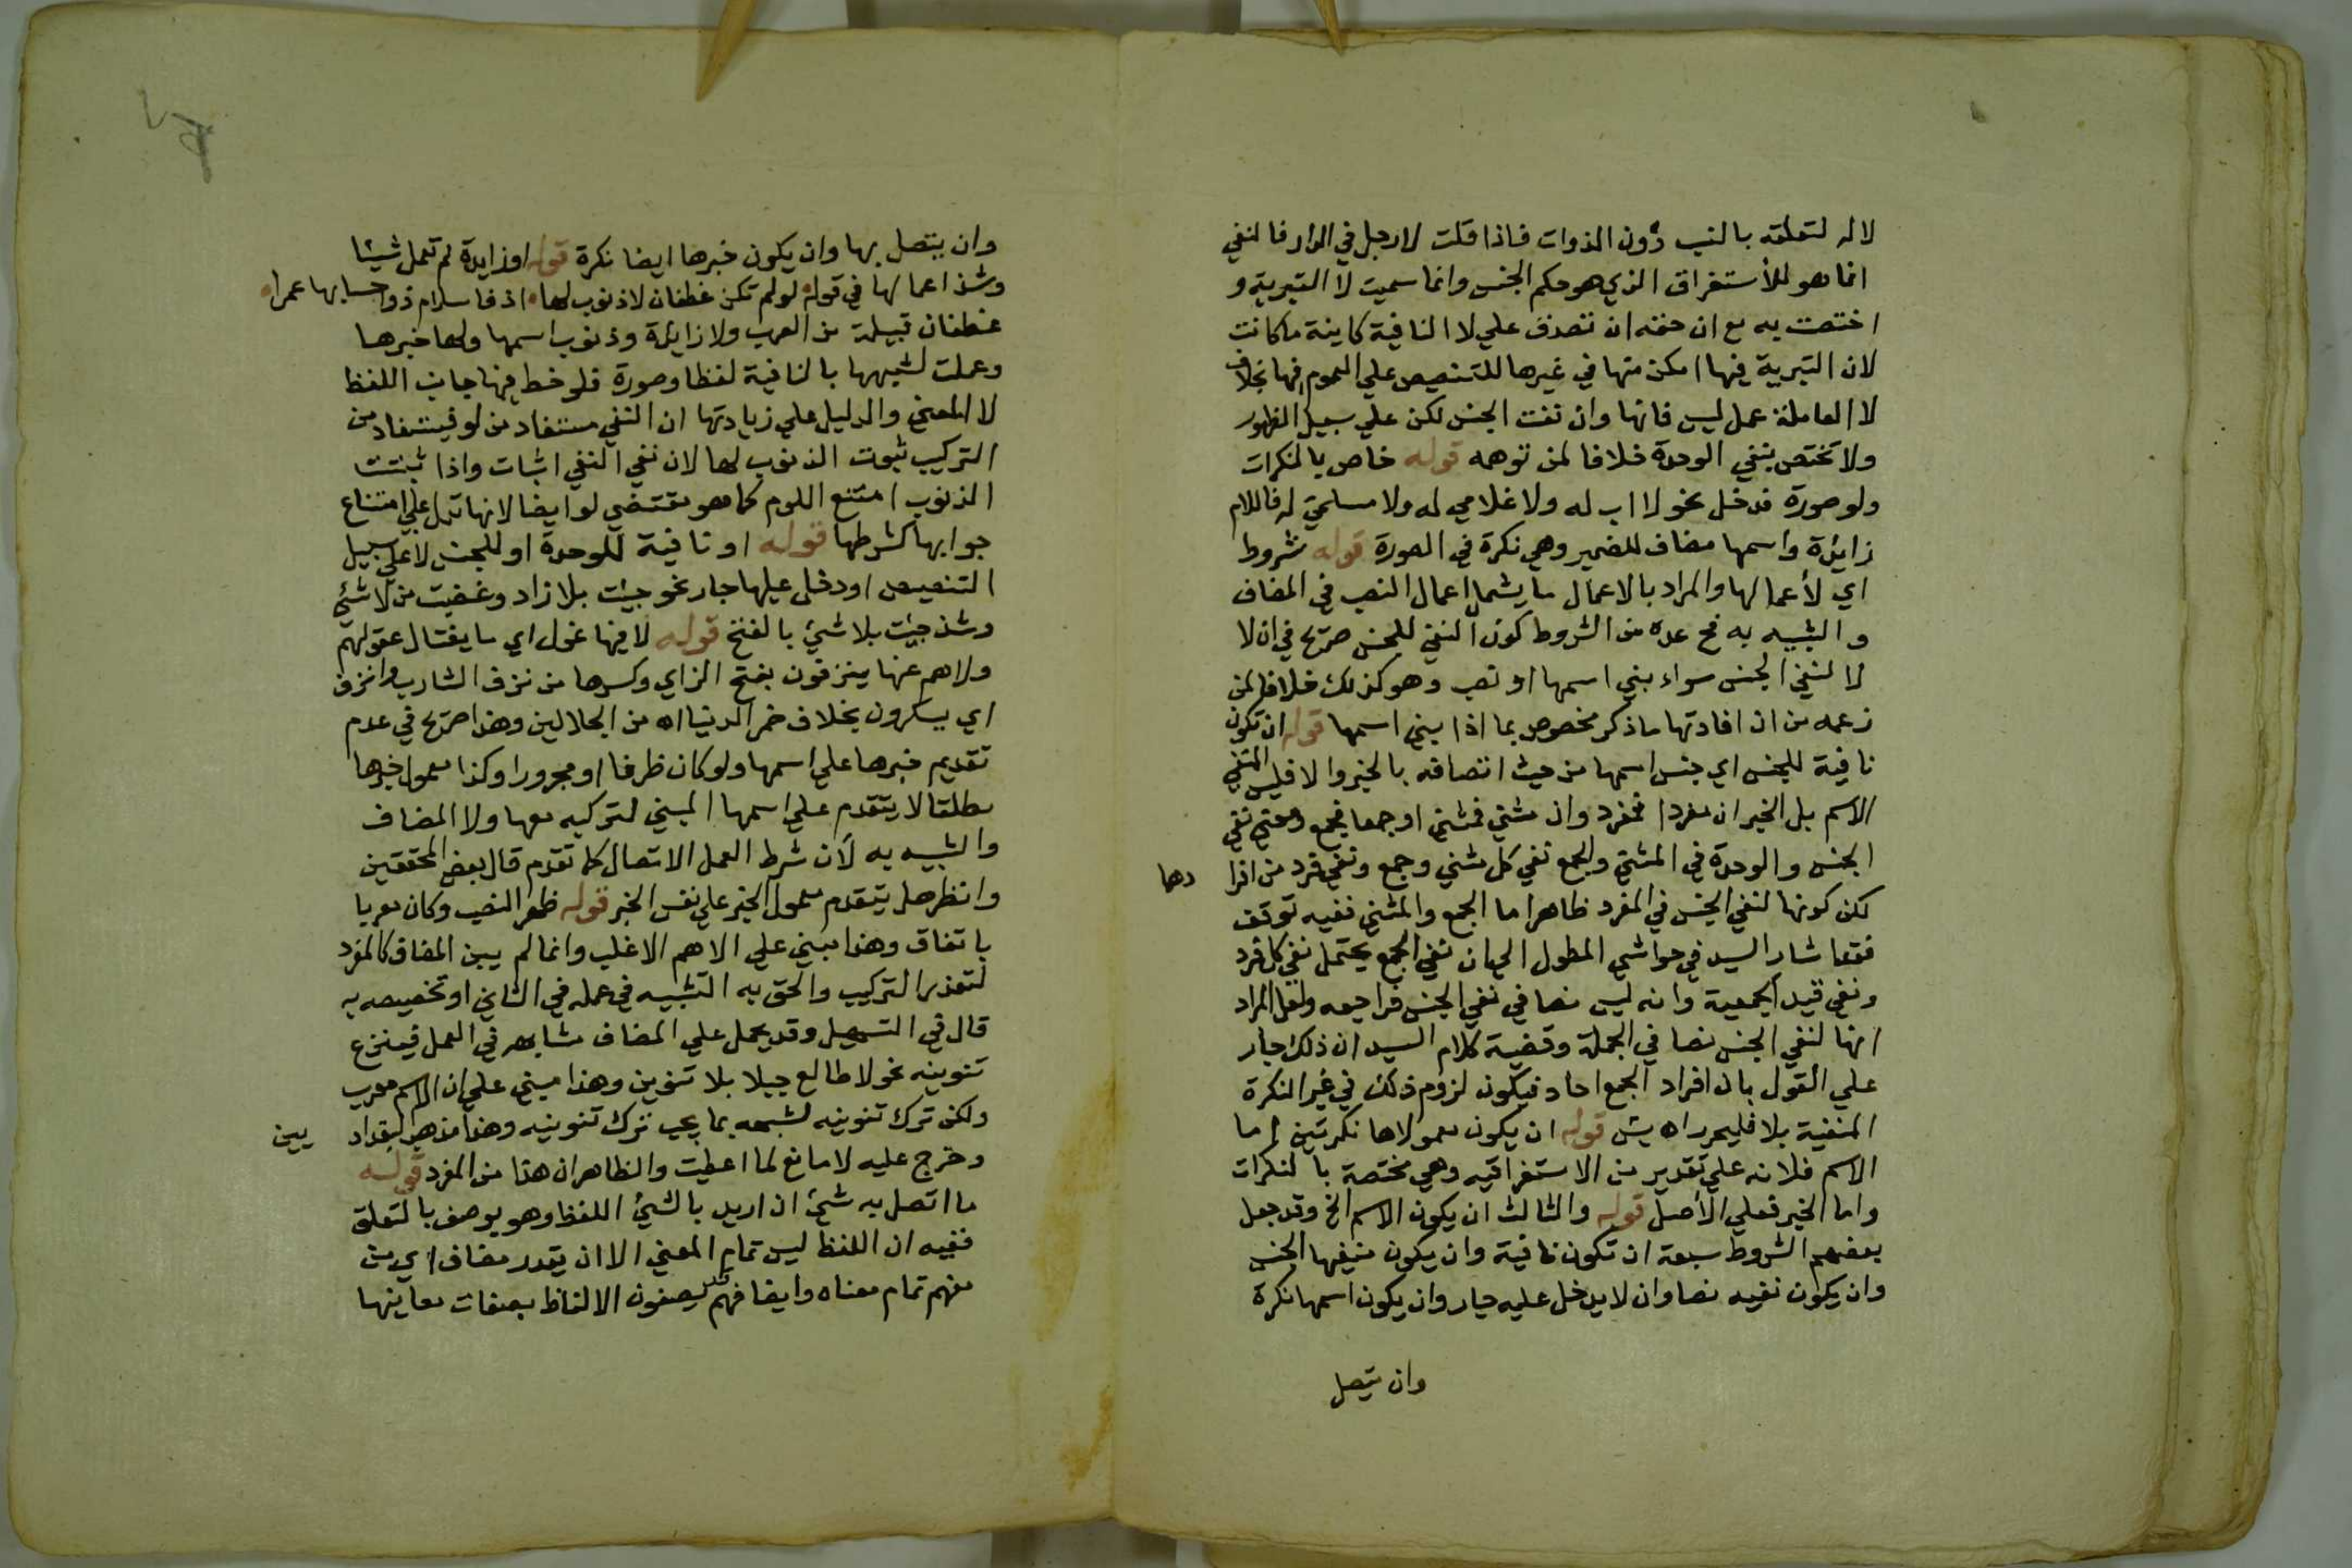 لا له لتعلقه بالنسب دون الذوات فاذا قلت لا رجل في الدار فالنفي
انما هو للاستغراق الذي هو حكم الجنس وانما سميت لا التبرية و
اختصت به مع ان حقه ان تصدق علي لا النافية كاينة ما كانت
لان التبرية فيها امكن منها في غيرها للتنصيص علي العموم فيها بخلاف
لا العاملة عمل ليس فانها وان نفت الجنس لكن علي سبيل الظهور
ولا تختص بنفي الوحدة خلافا لمن توهمه قوله خاص بالنكرات
ولو صورة فدخل نحو لا اب له ولا غلامي له ولا مسلمي له فاللام
زايدة واسمها مضاف للضمير وهي نكرة في الصورة قوله شروط
اي لأعمالها والمراد بالاعمال ما يشمل اعمال النصب في المضاف
والشبيه به فح عده من الشروط كون النفي للجنس صريح في ان لا
لا لنفي الجنس سواء بني اسمها او نصب وهو كذلك خلافا لمن
زعمه من ان افادتها ما ذكر مخصوص بما اذا بني اسمها قوله ان تكون
نافية للجنس اي جنس اسمها من حيث اتصافه بالخبر والا فليس المنفي
الاسم بل الخبر ان مفردا فمفرد وان مثني فمثني او جمعا فجمع ومعني نفي
الجنس والوحدة في المثني والجمع نفي كل مثني وجمع ونفي فرد من افرا دها
لكن كونها لنفي الجنس في المفرد ظاهر اما الجمع والمثني ففيه توقف
فقد اشار السيد في حواشي المطول الي ان نفي الجمع يحتمل نفي كل فرد
ونفي قيد الجمعية وانه ليس نصا في نفي الجنس فراجعه ولعل المراد
انها لنفي الجنس نصا في الجملة وقضية كلام السيد ان ذلك جار
علي القول بان افراد الجمع احاد فيكون لزوم ذلك في غير النكرة
المنفية بلا فليحرر اه يش قوله ان يكون معمولاها نكرتين اما
الاسم فلانه علي تقدير من الاستغراقيه وهي مختصة بالنكرات
واما الخبر فعلي الأصل قوله والثالث ان يكون الاسم الخ وقد جعل
بعضهم الشروط سبعة ان تكون نافية وان يكون منفيها الجنس
وان يكون نفيه نصا وان لا يدخل عليه جار وان يكون اسمها نكرة
وان يتصل
وان يتصل بها وان يكون خبرها ايضا نكرة قوله او زايدة لم تعمل شيئا
وشذ اعمالها في قوله لو لم تكن غطفان لا ذنوب لها اذ فا سلام ذوا حسابها عمرا
غطفان قبيلة من العرب ولا زايدة وذنوب اسمها ولها خبرها
وعملت لشبهها بالنافية لفظا وصورة فلوحظ فيها جانب اللفظ
لا المعني والدليل علي زيادتها ان النفي مستفاد من لو فيستفاد من
التركيب ثبوت الذنوب لها لان نفي النفي اثبات واذا ثبتت
الذنوب امتنع اللوم كما هو مقتضي لو ايضا لانها تدل علي امتناع
جوابها كشرطها قوله او نافية للوحدة او للجنس لا علي سبيل
التنصيص او دخل عليها جار نحو جيئت بلا زاد وغضبت من لا شئ
وشذ جيئت بلا شئ بالفتح قوله لا فيها غول اي ما يغتال عقولهم
ولا هم عنها ينزفون بفتح الزاي وكسرها من نزف الشارب وانزف
اي يسكرون بخلاف خمر الدنيا اه من الجلالين وهذا صريح في عدم
تقديم خبرها علي اسمها ولو كان ظرفا او مجرورا وكذا معمول خبرها
مطلقا لا يتقدم علي اسمها المبني لتركبه معها ولا المضاف
والشبيه به لأن شرط العمل الاتصال كما تقدم قال بعض المحققين
وانظر هل يتقدم معمول الخبر علي نفس الخبر قوله ظهر النصب وكان معربا
باتفاق وهذا مبني علي الاهم الاغلب وانما لم يبن المضاف كالمفرد
لتعذر التركيب والحق به الشبيه في عمله في الثاني او تخصيصه به
قال في التسهيل وقد يحمل علي المضاف مشابهه في العمل فينزع
تنوينه نحو لا طالع جبلا بلا تنوين وهذا مبني علي ان الاسم معرب
ولكن ترك تنوينه لشبهه بما يجب ترك تنوينه وهذا مذهب البغداد يين
وخرج عليه لا مانع لما اعطيت والظاهر ان هذا من المفرد قوله
ما اتصل به شئ ان اريد بالشئ اللفظ وهو يوصف بالتعلق
ففيه ان اللفظ ليس تمام المعني الا ان يقدر مضاف اي من
مفهم تمام معناه وايضا فهم قد يصفون الالفاظ بصفات معاينها